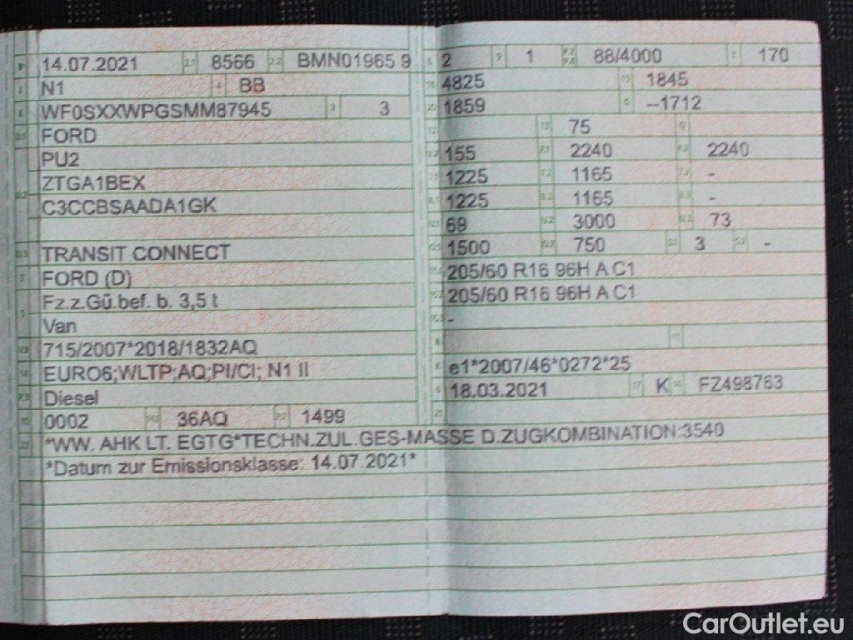 14.07.2021 2.1 8566 2.2 BMN01965 9
N1 4 BB
WF0SXXWPGSMM87945 3 3
FORD
PU2
ZTGA1BEX
C3CCBSAADA1GK
TRANSIT CONNECT
FORD (D)
Fz.z.Gü.bef. b. 3,5 t
Van
715/2007*2018/1832AQ
EURO6;WLTP;AQ;PI/CI; N1 II
Diesel
0002 36AQ 1499
2 1 88/4000 170
4825 1845
1859 --1712
75
155 2240 2240
1225 1165 -
1225 1165 -
69 3000 73
1500 750 3 -
205/60 R16 96H A C1
205/60 R16 96H A C1
-
e1*2007/46*0272*25
18.03.2021 K FZ498763
*WW. AHK LT. EGTG*TECHN.ZUL.GES-MASSE D.ZUGKOMBINATION:3540
*Datum zur Emissionsklasse: 14.07.2021*
CarOutlet.eu